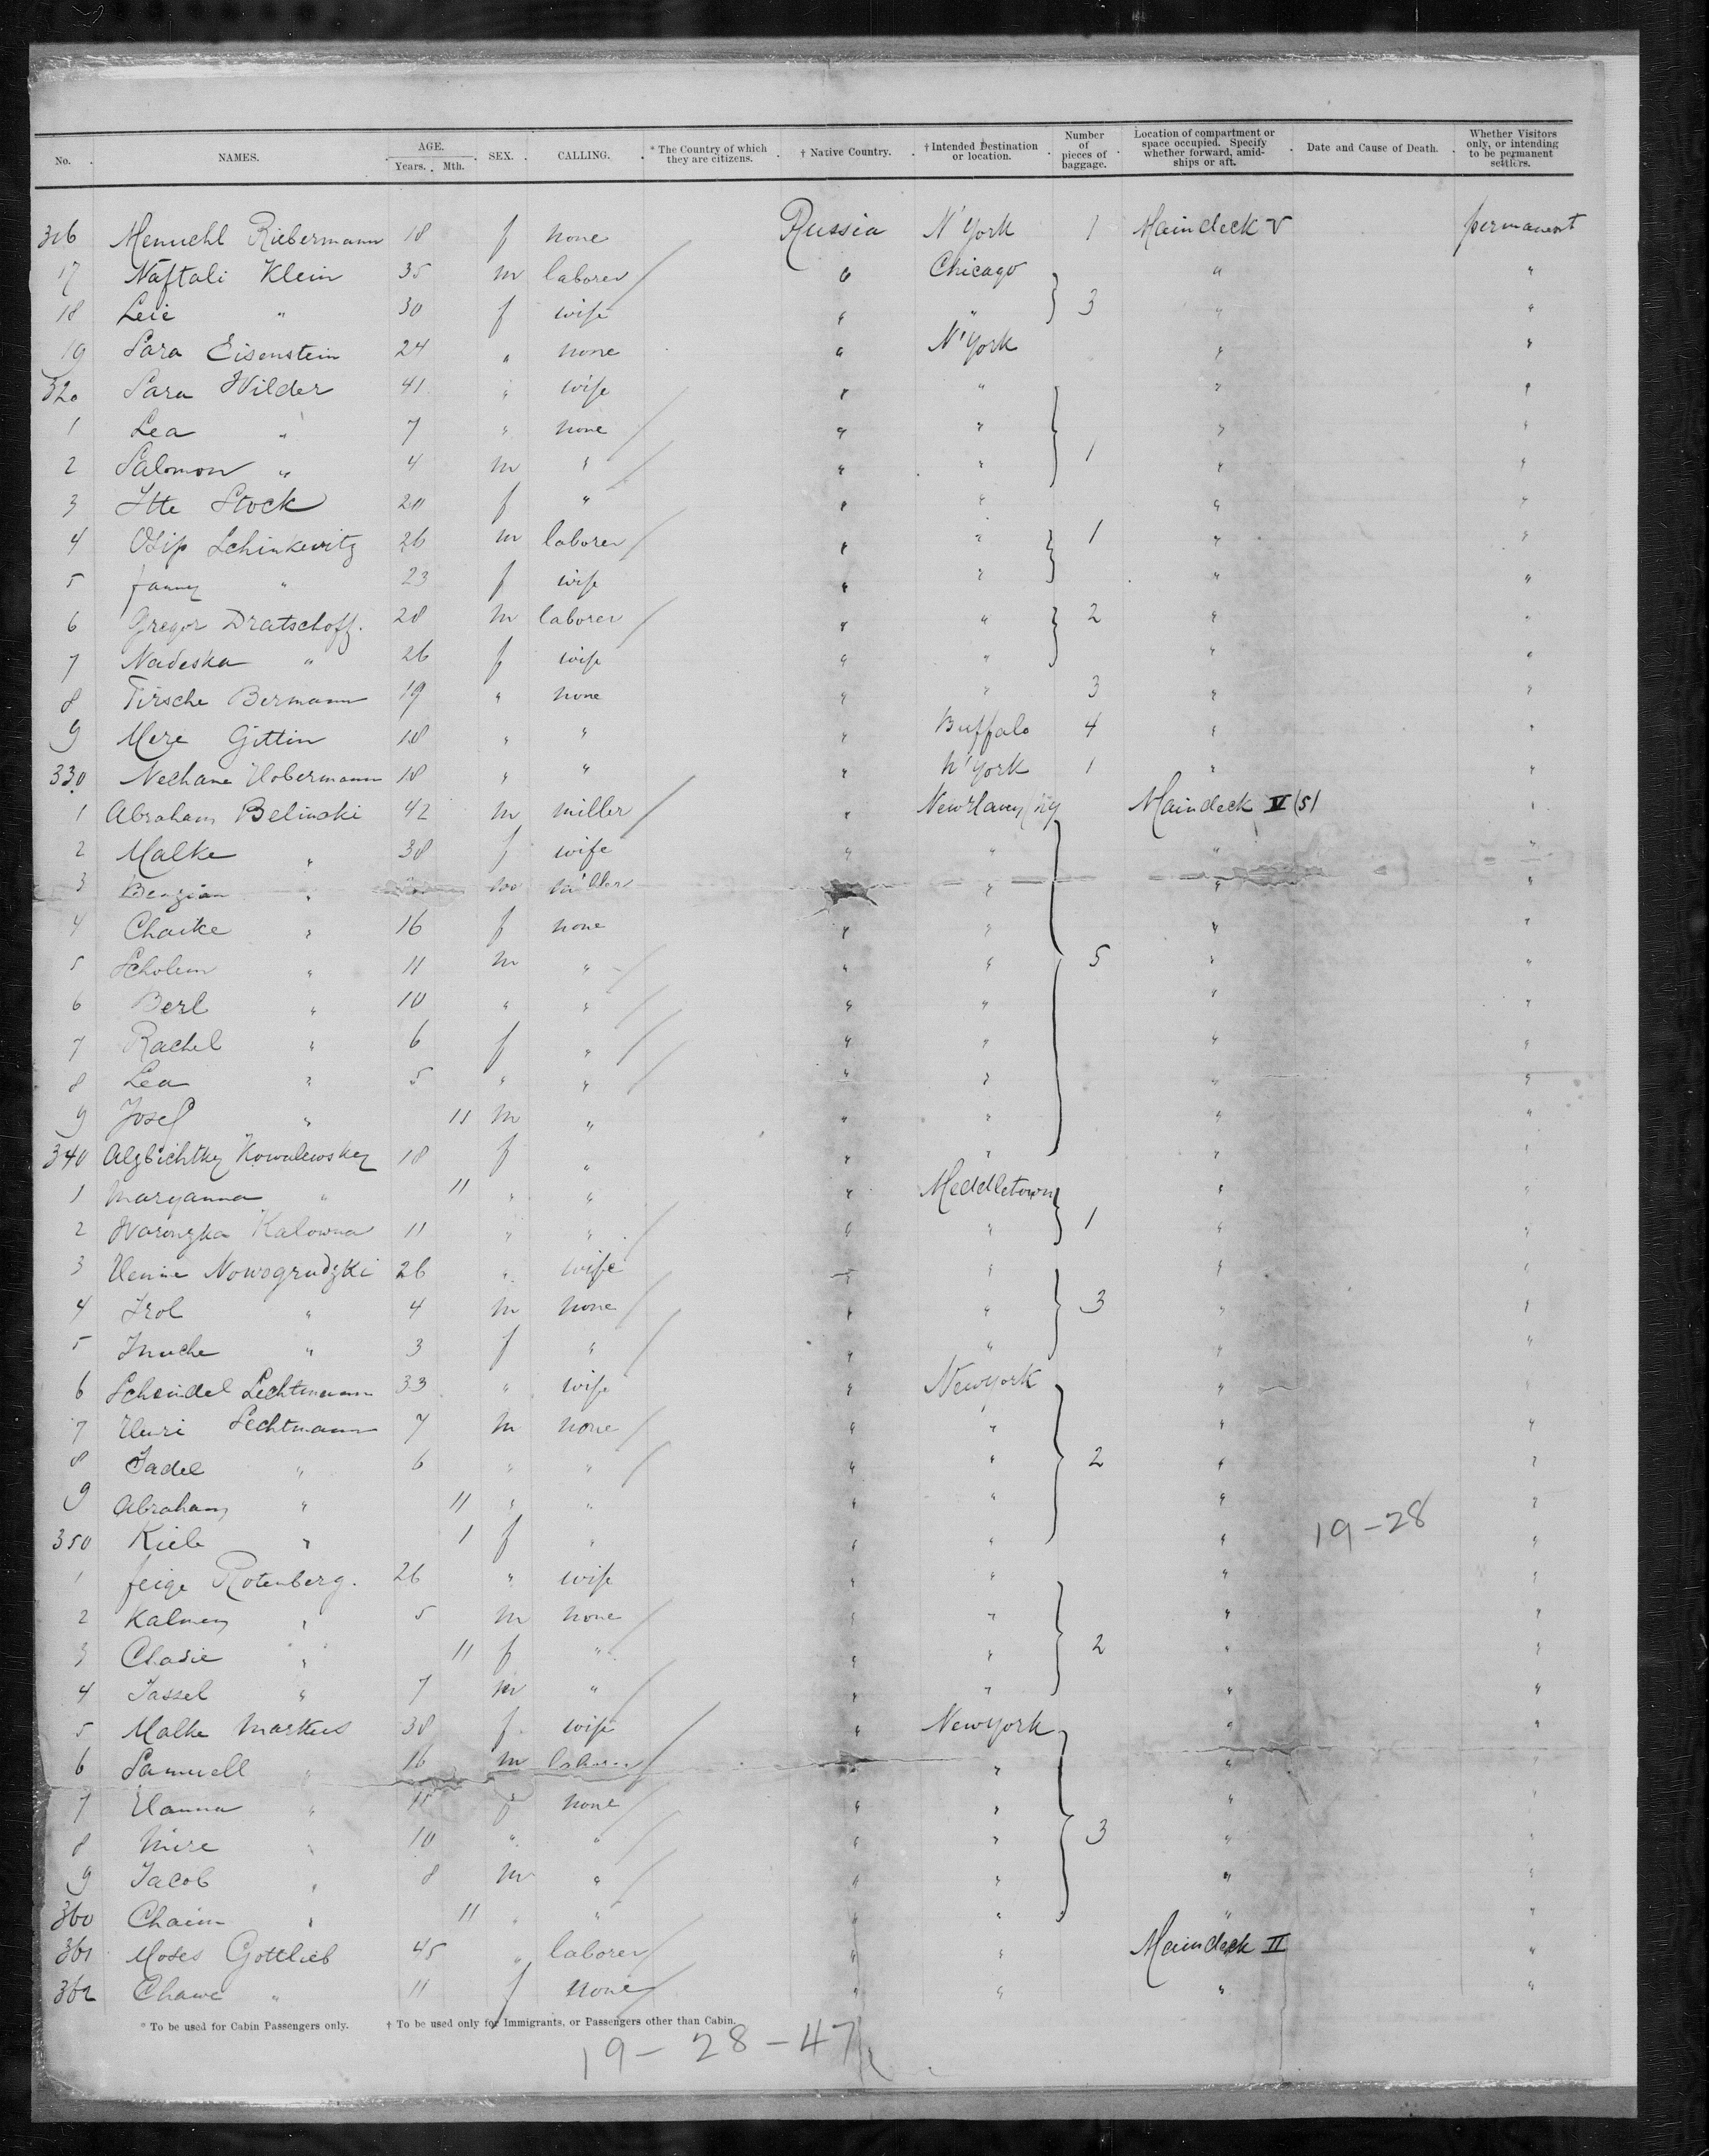 No. NAMES. AGE. Years. Mth. SEX. CALLING. * The Country of which they are citizens. † Native Country. † Intended Destination or location. Number of pieces of baggage. Location of compartment or space occupied. Specify whether forward, amidships or aft. Date and Cause of Death. Whether Visitors only, or intending to be permanent settlers.
316 Menuchl Riebermann 18 f none Russia N'York 1 Maindeck V permanent
17 Naftali Klein 35 m laborer " Chicago " "
18 Leie " 30 f wife " " 3 " "
19 Sara Eisenstein 24 " none " N'York " "
320 Sara Wilder 41 " wife " " " "
1 Lea " 7 " none " " " "
2 Salomon " 4 m " " " 1 " "
3 Itte Stock 20 f " " " " "
4 Osip Schinkevitz 26 m laborer " " 1 " "
5 fanny " 23 f wife " " " "
6 Gregor Dratschoff. 28 m laborer " " 2 " "
7 Nadeska " 26 f wife " " " "
8 Tirsche Bermann 19 " none " " 3 " "
9 Mere Gittin 18 " " " Buffalo 4 " "
330 Nechane Hobermann 18 " " " N'York 1 " "
1 Abraham Belinski 42 m miller " Newhaven Maindeck V (S) "
2 Malke " 38 f wife " " " "
3 Benzian " m " " " "
4 Chaike " 16 f none " " " "
5 Scholem " 11 m " " " 5 " "
6 Berl " 10 " " " " " "
7 Rachel " 6 f " " " " "
8 Lea " 5 " " " " " "
9 Josef " 11 m " " " " "
340 Alzbichtky Kowalewsky 18 f " " " " "
1 Maryanna " 11 " " " Meddletown " "
2 Waronzka Kalowna 11 " " " " 1 " "
3 Henine Nowogrudzki 26 " wife " " " "
4 Irol " 4 m none " " 3 " "
5 Imuche " 3 f " " " " "
6 Scheindel Lechtmann 33 " wife " Newyork " "
7 Henri Lechtmann 7 m none " " " "
8 Jadel " 6 " " " " 2 " "
9 Abraham " 11 " " " " " "
350 Kiele " 1 f " " " " 19-28 "
1 feige Rotenberg. 26 " wife " " " "
2 Kalmen " 5 m none " " " "
3 Chasie " 11 f " " " 2 " "
4 Jassel " 7 m " " " " "
5 Malke Markus 38 f wife " Newyork " "
6 Samuell " 16 m " " " "
7 Hanna " 11 f none " " " "
8 Mire " 10 " " " " 3 " "
9 Jacob " 8 m " " " " "
360 Chaim " 11 " " " " " "
361 Moses Gottlieb 45 " laborer " " Maindeck II "
362 Chawe " 11 f none " " " "
* To be used for Cabin Passengers only. † To be used only for Immigrants, or Passengers other than Cabin.
19-28-47